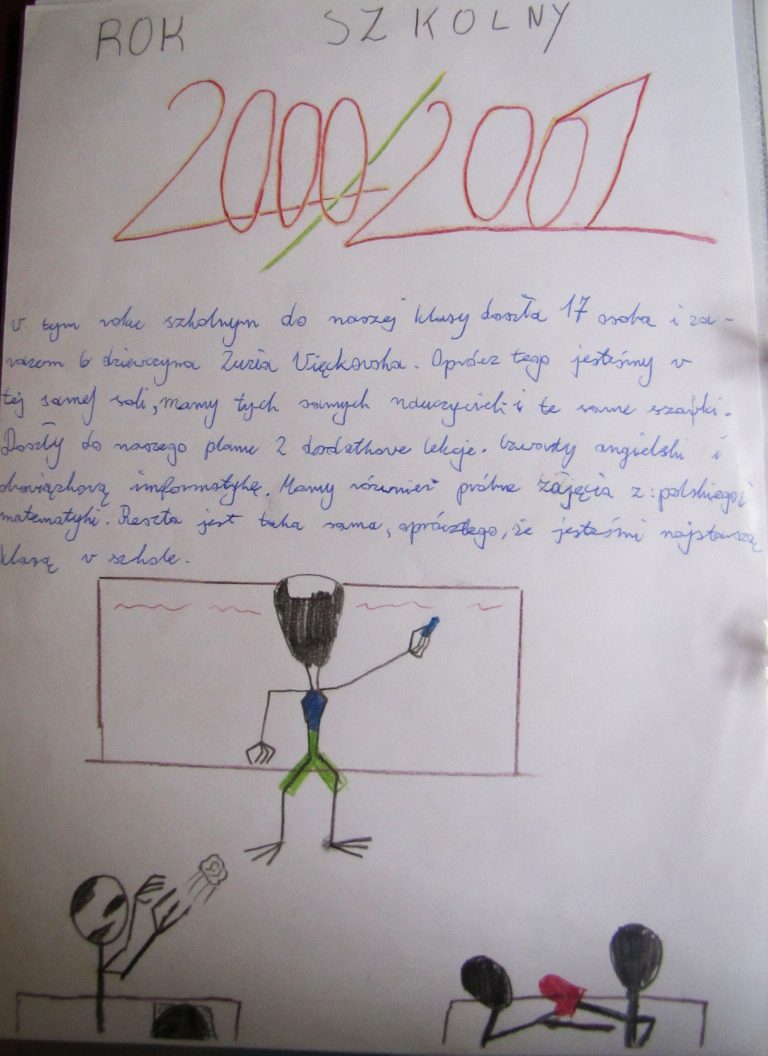 ROK SZKOLNY
2000/2001
W tym roku szkolnym do naszej klasy doszła 17 osoba i za-
razem 6 dziewczyna Zuzia Więckowska. Oprócz tego jesteśmy w
tej samej sali, mamy tych samych nauczycieli i te same szafki.
Doszły do naszego planu 2 dodatkowe lekcje. Czwarty angielski i
obowiązkową informatykę. Mamy równierż próbne zajęcia z: polskiego i
matematyki. Reszta jest taka sama, oprócztego, że jesteśmi najstarszą
klasą w szkole.